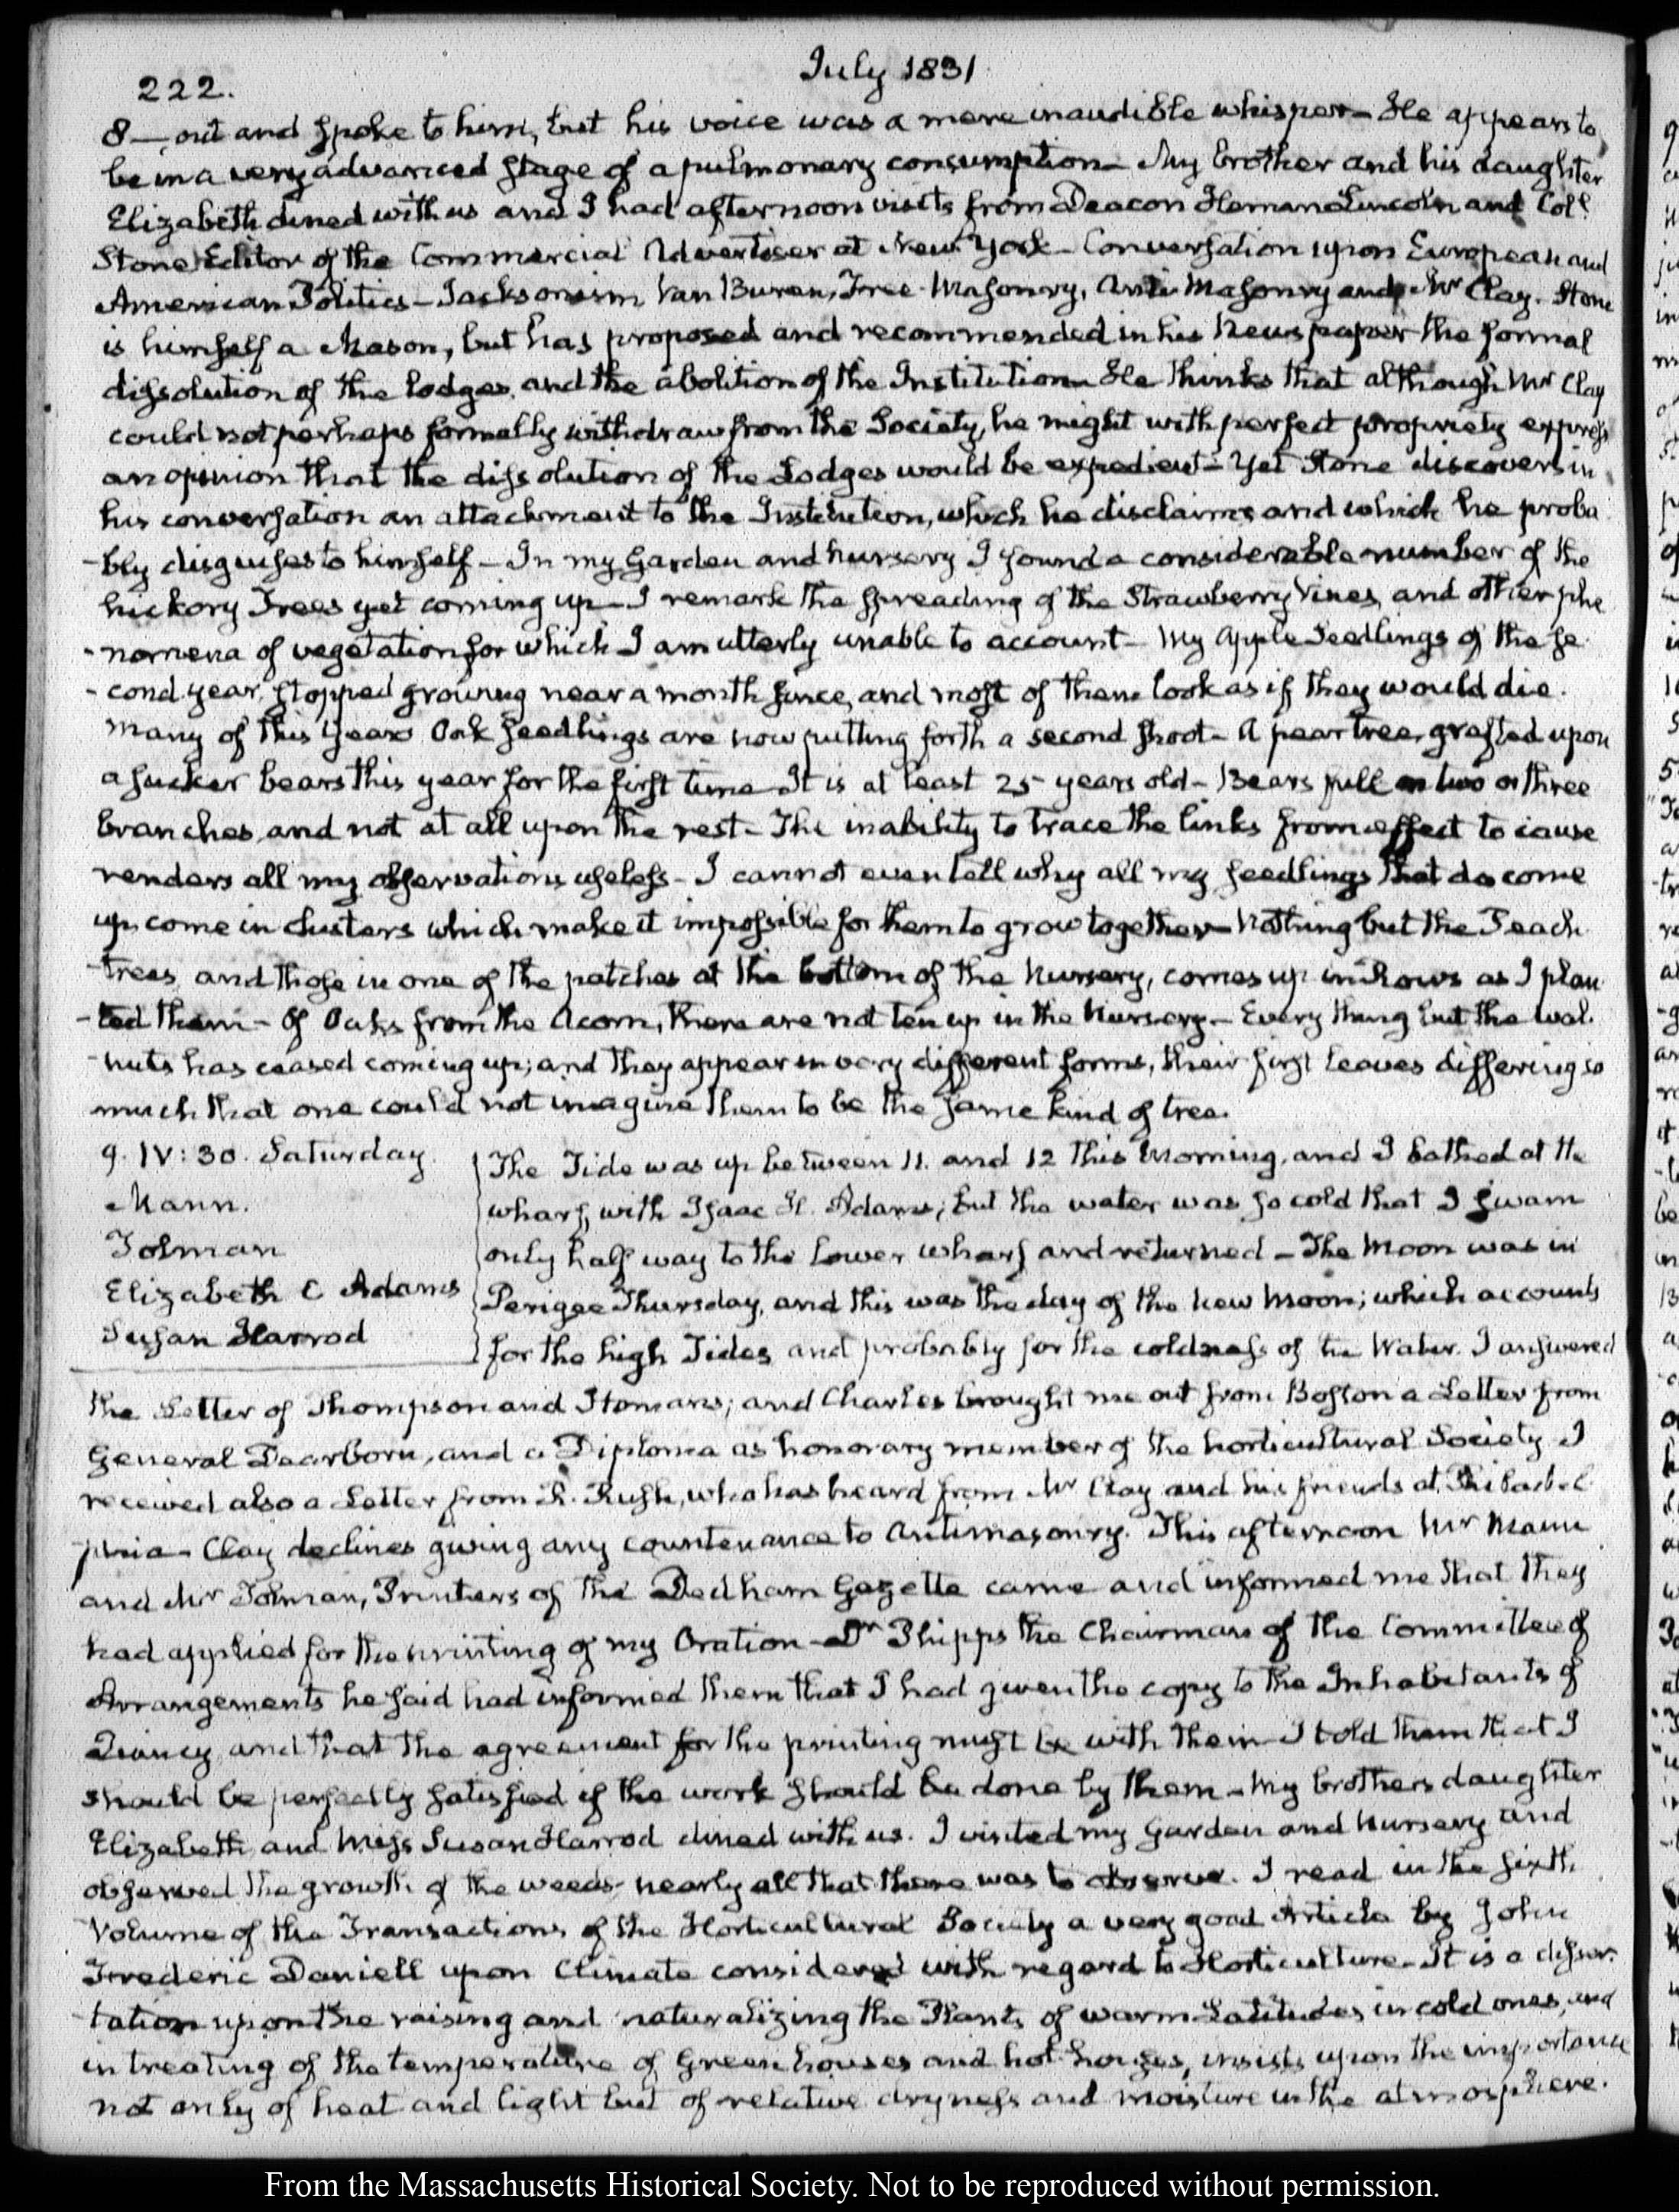 222.
July 1831
8 — out and spoke to him, but his voice was a mere inaudible whisper — He appears to
be in a very advanced stage of a pulmonary consumption — My brother and his daughter
Elizabeth dined with us and I had afternoon visits from Deacon Heman Lincoln and Coll.
Stone, Editor of the Commercial Advertiser at New York — Conversation upon European and
American Politics — Jacksonism, Van Buren, Free Masonry, Anti Masonry and Mr Clay. Stone
is himself a Mason, but has proposed and recommended in his Newspaper the formal
dissolution of the Lodges, and the abolition of the Institution — He thinks that although Mr Clay
could not perhaps formally withdraw from the Society, he might with perfect propriety express
an opinion that the dissolution of the Lodges would be expedient — Yet Stone discovers in
his conversation an attachment to the Institution, which he disclaims and which he proba
-bly disguises to himself — In my Garden and Nursery I found a considerable number of the
hickory Trees yet coming up — I remark the spreading of the Strawberry Vines, and other phe
-nomena of vegetation for which I am utterly unable to account — My Apple Seedlings of the se
-cond year, stopped growing near a month since, and most of them look as if they would die.
Many of this Years Oak seedlings are now putting forth a second shoot — A pear tree, grafted upon
a sucker bears this year for the first time — It is at least 25 years old — Bears full on two or three
branches, and not at all upon the rest — The inability to trace the links from effect to cause
renders all my observations useless — I cannot even tell why all my seedlings that do come
up, come in clusters which make it impossible for them to grow together — Nothing but the Peach
-trees, and those in one of the patches at the bottom of the Nursery, comes up in Rows as I plan
-ted them — Of Oaks from the Acorn, there are not ten up in the Nursery — Every thing but the wal
-nuts has ceased coming up; and they appear in very different forms, their first leaves differing so
much that one could not imagine them to be the same kind of tree.
9. IV: 30. Saturday
Mann.
Tolman
Elizabeth C Adams
Susan Harrod
The Tide was up between 11. and 12 this Morning, and I bathed at the
wharf, with Isaac H. Adams; but the water was so cold that I swam
only half way to the lower wharf and returned — The Moon was in
Perigee Thursday, and this was the day of the New Moon; which accounts
for the high Tides, and probably for the coldness of the Water. I answered
the Letter of Thompson and Homans; and Charles brought me out from Boston a Letter from
General Dearborn, and a Diploma as honorary member of the horticultural Society. I
received also a Letter from R. Rush, who has heard from Mr Clay and his friends at Philadel
-phia — Clay declines giving any countenance to Antimasonry. This afternoon Mr Mann
and Mr Tolman, Printers of the Dedham Gazette came and informed me that they
had applied for the printing of my Oration — Dr Phipps the Chairman of the Committee of
Arrangements he said had informed them that I had given the copy to the Inhabitants of
Quincy, and that the agreement for the printing must be with them — I told them that I
should be perfectly satisfied if the work should be done by them — My brothers daughter
Elizabeth, and Miss Susan Harrod dined with us. I visited my Garden and Nursery and
observed the growth of the weeds, nearly all that there was to observe. I read in the sixth
Volume of the Transactions of the Horticultural Society a very good Article by John
Frederic Daniell upon Climate considered with regard to Horticulture — It is a disser
-tation upon the raising and naturalizing the Plants of warm Latitudes in cold ones, and
in treating of the temperature of Green houses and hot-houses, insists upon the importance
not only of heat and light but of relative dryness and moisture in the atmosphere.
From the Massachusetts Historical Society. Not to be reproduced without permission.